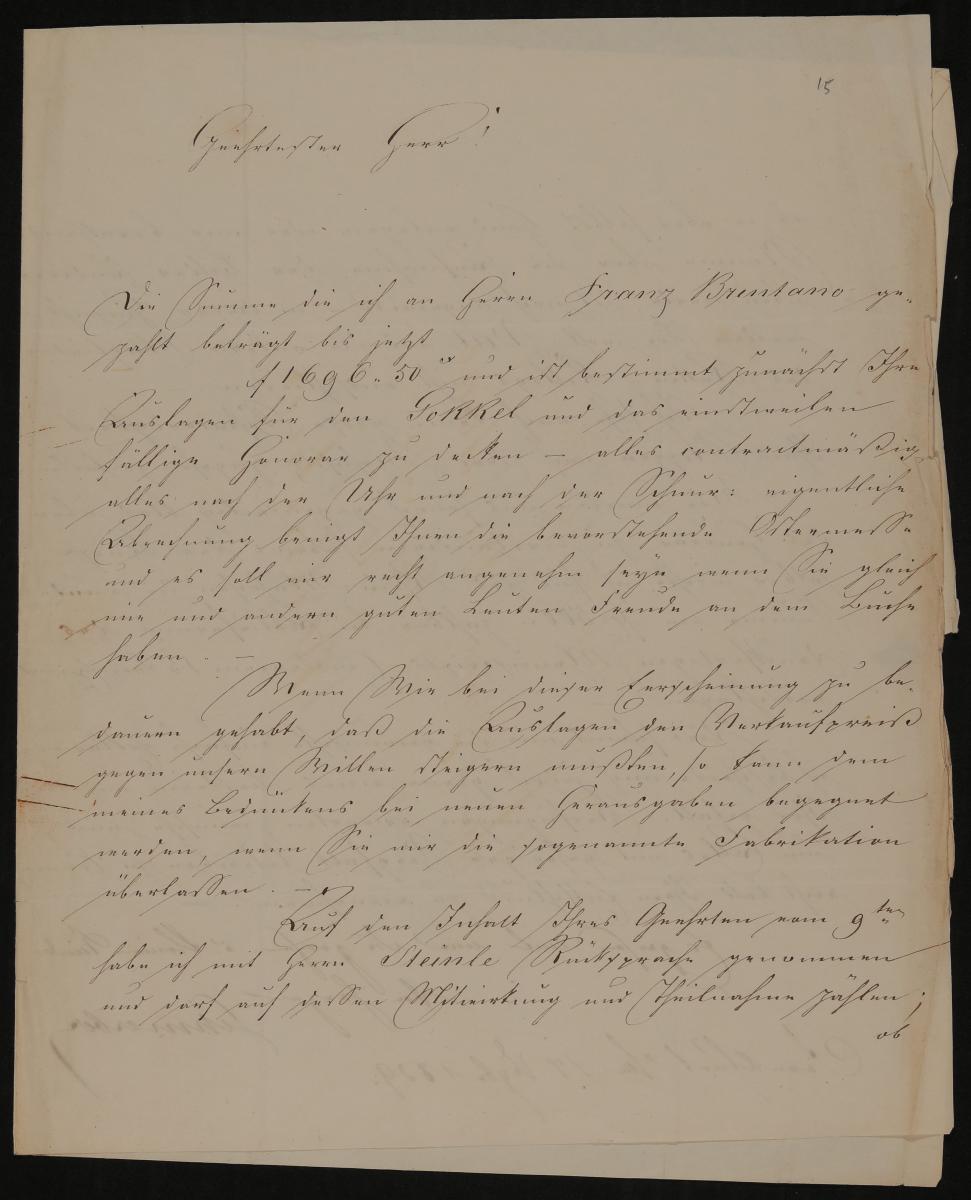 15
Geehrtester Herr!
Die Summe die ich an Herrn Franz Brentano ge-
zahlt beträgt bis jetzt
f 1696„ 50 xr und ist bestimmt zunächst Ihre
Auslagen für den Gokkel und das einstweilen
fällige Honorar zu decken – alles contractmäßig
alles nach der Uhr und nach der Schnur: eigentliche
Abrechnung bringt Ihnen die bevorstehende Ostermesse
und es soll mir recht angenehm seyn wenn Sie gleich
mir und andern guten Leuten Freude an dem Buche
haben. –
Wenn Wir bei dieser Erscheinung zu be-
dauern gehabt, daß die Auslagen den Verkaufpreiß
gegen unsern Willen steigern mußten, so kann dem
meines Bedünkens bei neuen Herausgaben begegnet
werden, wenn Sie mir die sogenannte Fabrikation
überlassen. –
Auf den Inhalt Ihres Geehrten vom 9ten
habe ich mit Herrn Steinle Rücksprache genommen
und darf auf dessen Mitwirkung und Theilnahme zählen;
ob